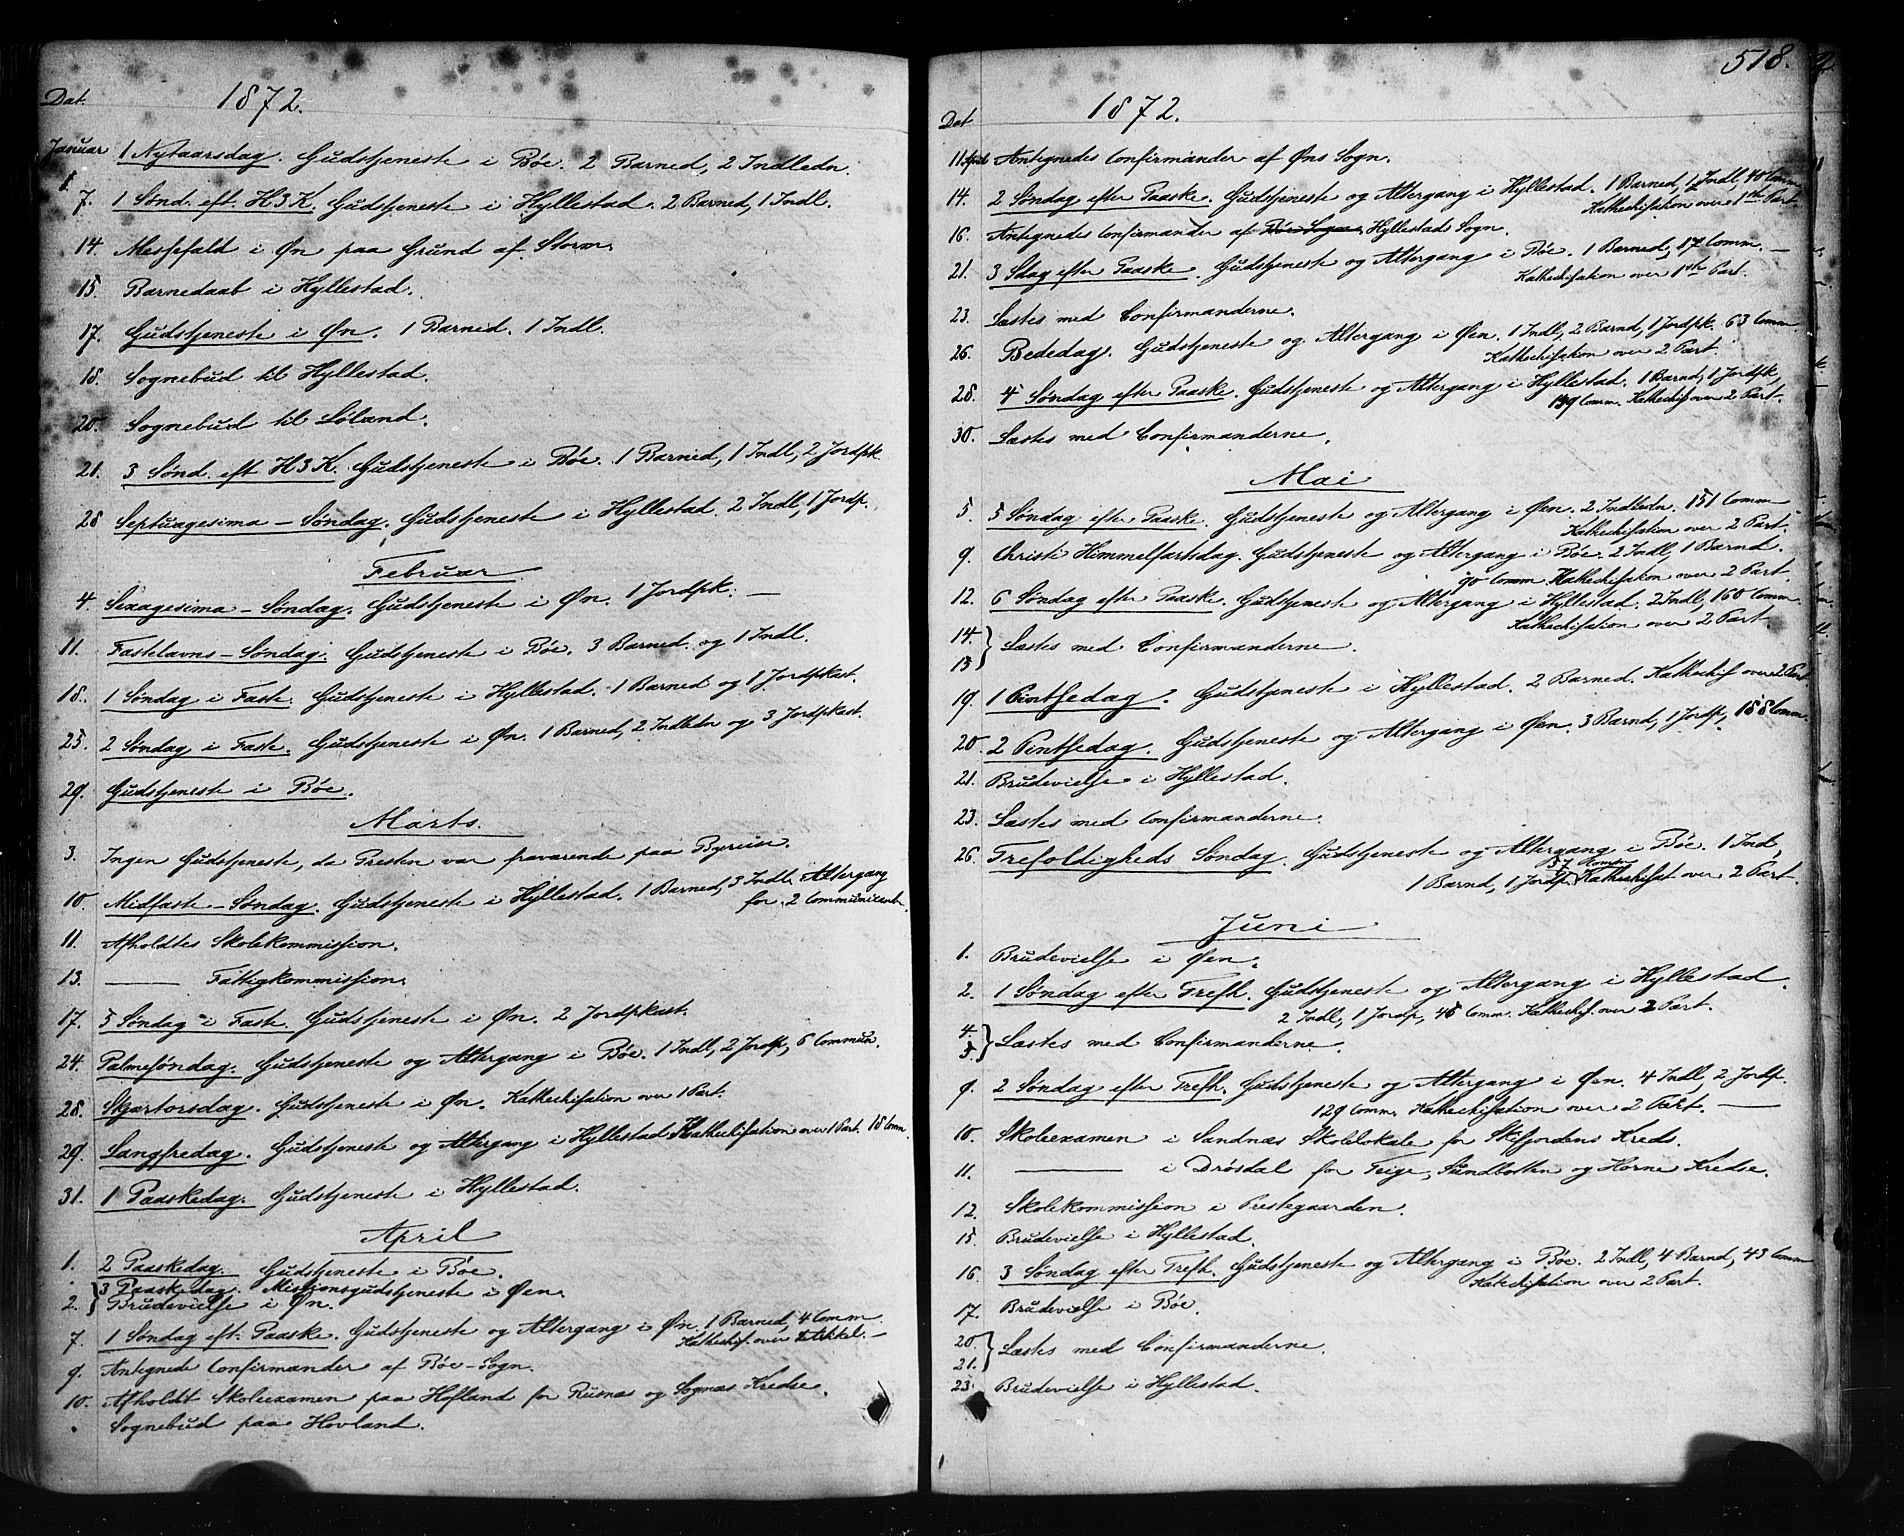 Dat. 1872.
Januar 1. 1 Nytaarsdag. Gudstjeneste i Bøe. 2 Barned, 2 Indledn.
7. 1 Sønd. eft. H3K. Gudstjeneste i Hyllestad. 2 Barned, 1 Indl.
14. Messefald i Øn paa Grund af Storm.
15. Barnedaab i Hyllestad.
17. Gudstjeneste i Øn. 1 Barned. 1 Indl.
18. Sognebud til Hyllestad.
20. Sognebud til Löland.
21. 3 Sønd. eft H3K. Gudstjeneste i Bøe. 1 Barned, 1 Indl, 2 Jordpk
28 Septuagesima – Søndag. Gudstjeneste i Hyllestad. 2 Indl, 1 Jordp.
Februar
4. Sexagesima – Søndag. Gudstjeneste i Øn. 1 Jordpk. —
11. Fastelavns – Søndag. Gudstjeneste i Bøe. 3 Barned. og 1 Indl.
18. 1 Søndag i Faste. Gudstjeneste i Hyllestad. 1 Barned og 1 Jordpkast.
25. 2 Søndag i Faste. Gudstjeneste i Øn. 1 Barned, 2 Indledn og 3 Jordpkast.
29. Gudstjeneste i Bøe.
Marts.
3. Ingen Gudstjeneste, da Presten var fraværende paa Byreise.
10. Midfaste – Søndag. Gudstjeneste i Hyllestad. 1 Barned, 3 Indl. Altergang
for 2 Communicanter.
11. Afholdtes Skolekommission.
13. —— Fattigkommission.
17. 5 Søndag i Faste. Gudstjeneste i Øn. 2 Jordpkast.
24. Palmesøndag. Gudstjeneste og Altergang i Bøe. 1 Indl, 2 Jordp, 6 Commun.
28. Skjærtorsdag. Gudstjeneste i Øn. Kathechisation over 1 Part.
29. Langfredag. Gudstjeneste og Altergang i Hyllestad. Kathechisation over 1 Part. 18 Comm.
31. 1 Paaskedag. Gudstjeneste i Hyllestad.
April
1. 2 Paaskedag. Gudstjeneste i Bøe.
3 Paaskedag. Missionsgudstjeneste i Øen.
2. Brudevielse i Øn.
7. 1 Søndag eft. Paaske. Gudstjeneste og Altergang i Øn. 1 Barned, 4 Comm.
Kathechis. over Artikkel. —
9. Antegnede Confirmander af Bøe-Sogn.
10. Afholdt Skoleexamen paa Hofland for Risnæs og Sognæs Kredse.
Sognebud paa Hovland.
518.
Dat 1872.
11. April Antegnedes Confirmander af Øns Sogn.
14. 2 Søndag efter Paaske. Gudstjeneste og Altergang i Hyllestad. 1 Barned, 1 Indl, 40 Comm.
Kathechisation over 1ste Part.
16. Antegnedes Confirmander af Bøe Sogn. Hyllestads Sogn.
21. 3 Sdag efter Paaske. Gudstjeneste og Altergang i Bøe. 1 Barned, 17 Comm. —
Kathechisation over 1ste Part.
23. Læstes med Confirmanderne.
26. Bededag. Gudstjeneste og Altergang i Øen. 1 Indl, 2 Barnd, 1 Jordpk. 63 Comm.
Kathechisation over 2 Part.
28. 4 Søndag efter Paaske. Gudstjeneste og Altergang i Hyllestad. 1 Barnd, 1 Jordpk,
Comm. Kathechis over 2 Part.
30. Læstes med Confirmanderne.
Mai
5. 5 Søndag efter Paaske. Gudstjeneste og Altergang i Øen. 2 Indledn. 151 Comm
Kathechisation over 2 Part.
9. Christi Himmelfartsdag. Gudstjeneste og Altergang i Bøe. 2 Indl, 1 Barnd.
90 Comm Kathechisation over 2 Part.
12. 6 Søndag efter Paaske. Gudstjeneste og Altergang i Hyllestad. 2 Indl, 160 Comm.
Kathechisation over 2 Part.
14.
15 Læstes med Confirmanderne.
19. 1 Pintsedag. Gudstjeneste i Hyllestad. 2 Barned. Kathechis over 2 Part.
20. 2 Pintsedag. Gudstjeneste og Altergang i Øen. 3 Barnd, 1 Jordp, 158 Comm.
21. Brudevielse i Hyllestad.
23. Læstes med Confirmanderne.
26. Trefoldigheds Søndag. Gudstjeneste og Altergang i Bøe. 1 Ind,
57 Komm
1 Barnd, 1 Jordp. Kathechisat over 2 Part.
Juni
1. Brudevielse i Øen.
2. 1 Søndag efter Trefh. Gudstjeneste og Altergang i Hyllestad.
2 Indl, 1 Jordp, 45 Comm. Kathechis. over 2 Part.
4.
5. Læstes med Confirmanderne.
9. 2 Søndag efter Trefh. Gudstjeneste og Altergang i Øen. 4 Indl, 2 Jordp.
129 Comm. Kathechisation over 2 Part. —
10. Skoleexamen i Sandnæs Skolelokale for Skifjordens Kreds.
11. —— i Drösdal for Teige, Sundbotten og Horne Kredse.
12. Skolekommission i Prestegaarden.
15. Brudevielse i Hyllestad.
16. 3 Søndag efter Trefh. Gudstjeneste og Altergang i Bøe. 2 Indl, 4 Barnd, 43 Comm
Katechisation over 2 Part.
17. Brudevielse i Bøe.
20.
21. Læstes med Confirmanderne.
23. Brudevielse i Hyllestad.